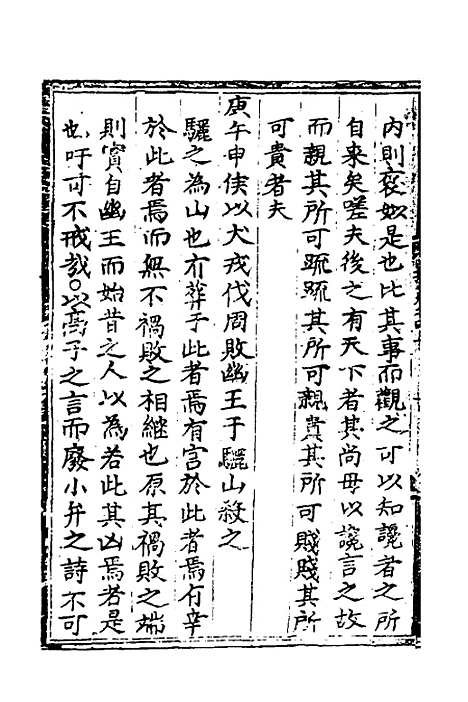 内則褒姒是也比其事而觀之可以知讒者之所
自来矣嗟夫後之有天下者其尚毋以讒言之故
而親其所可疏疏其所可親貴其所可賤賤其所
可貴者夫
庚午申侯以犬戎伐周敗幽王于驪山殺之
驪之為山也有葬于此者焉有宫於此者焉有幸
於此者焉而無不禍敗之相繼也原其禍敗之端
則實自幽王而始昔之人以為若此其凶焉者是
也吁可不戒哉○以髙子之言而廢小弁之詩不可